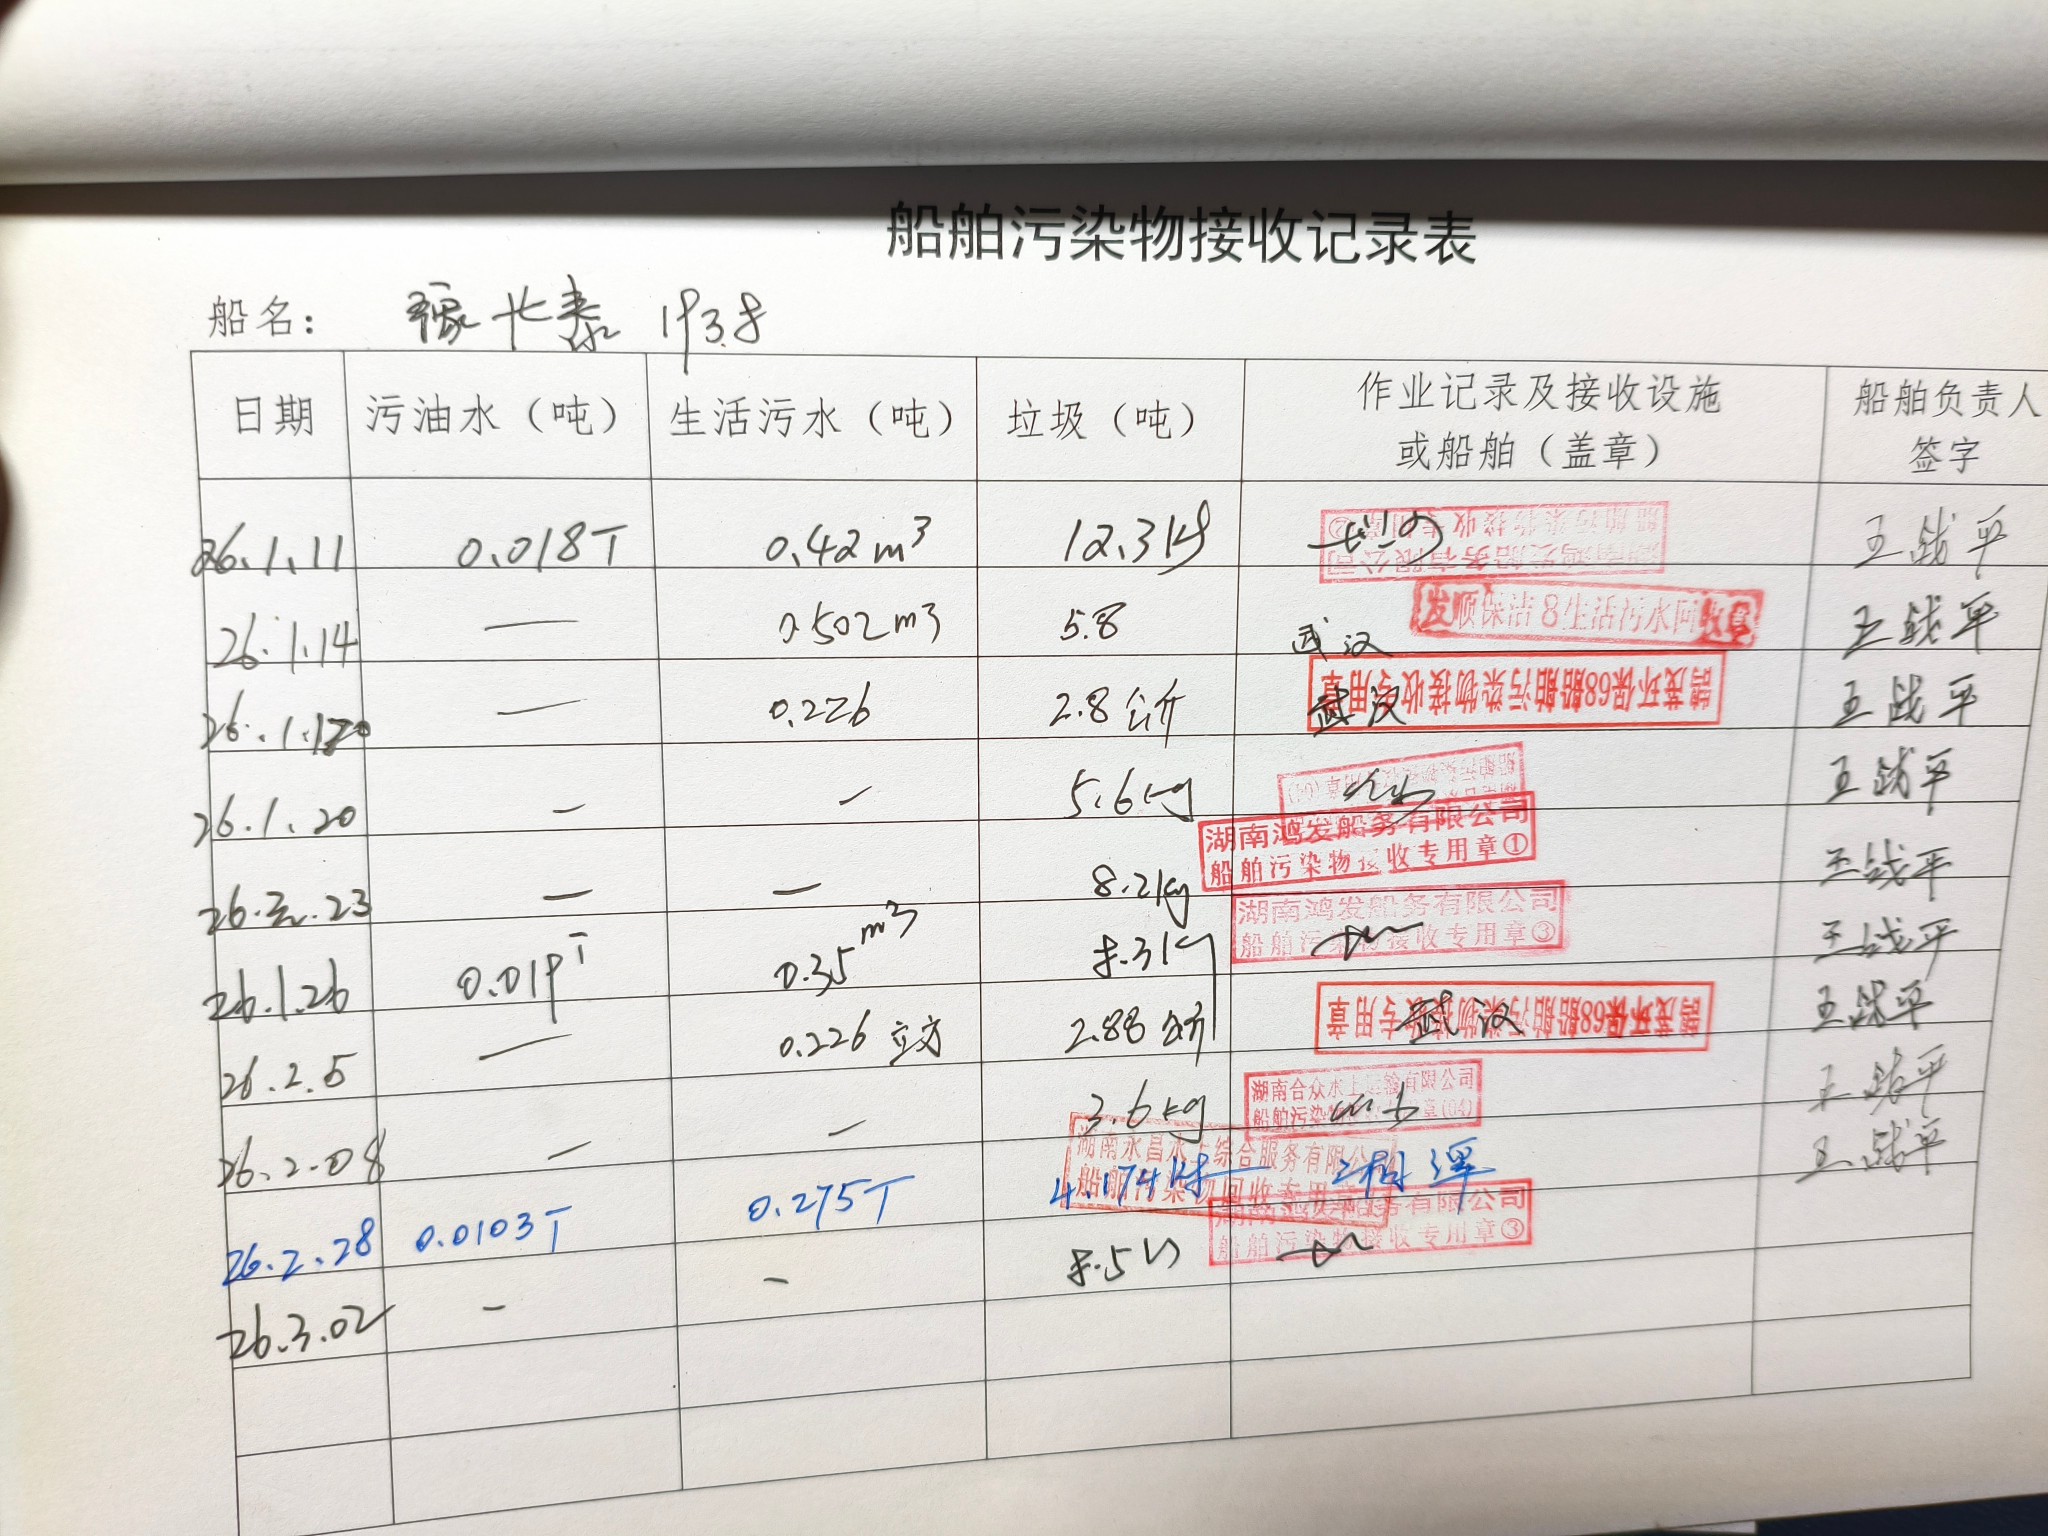 船舶污染物接收记录表
船名： 豫长泰 1938
日期 污油水（吨） 生活污水（吨） 垃圾（吨） 作业记录及接收设施或船舶（盖章） 船舶负责人签字
26.1.11 0.018T 0.42m³ 12.3kg 王战平
26.1.14 — 0.502m³ 5.8 武汉 发顺保洁8生活污水回收章 王战平
26.1.20 — 0.226 2.8公斤 武汉 鹞茂环保68船舶污染物接收专用章 王战平
26.1.20 — — 5.6kg 王战平
26.2.23 — — 8.2kg 湖南鸿发船务有限公司 船舶污染物接收专用章① 王战平
26.1.26 0.019T 0.35m³ 8.3kg 湖南鸿发船务有限公司 船舶污染物接收专用章③ 王战平
26.2.5 — 0.226立方 2.88公斤 武汉 环保68船舶污染物接收专用章 王战平
26.2.08 — — 3.6kg 湖南合众水上运输有限公司 船舶污染物 章(04) 王战平
26.2.28 0.0103T 0.275T 4.174kg 湖南永昌水上综合服务有限公司 船舶污染物回收专用章 王战平
26.3.02 — — 8.5kg 湖南鸿发船务有限公司 船舶污染物接收专用章③